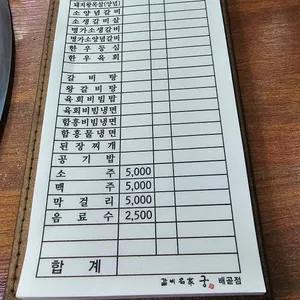 돼지왕목살(양념)
소양념갈비
소생갈비살
명가소갈비살
명가소양념갈비
한우등심
한우육회
갈비탕
왕갈비탕
육회비빔밥
육회비빔냉면
함흥비빔냉면
함흥물냉면
된장찌개
공기밥
소주 5,000
맥주 5,000
막걸리 5,000
음료수 2,500
합계
갈비名家 궁 배곧점